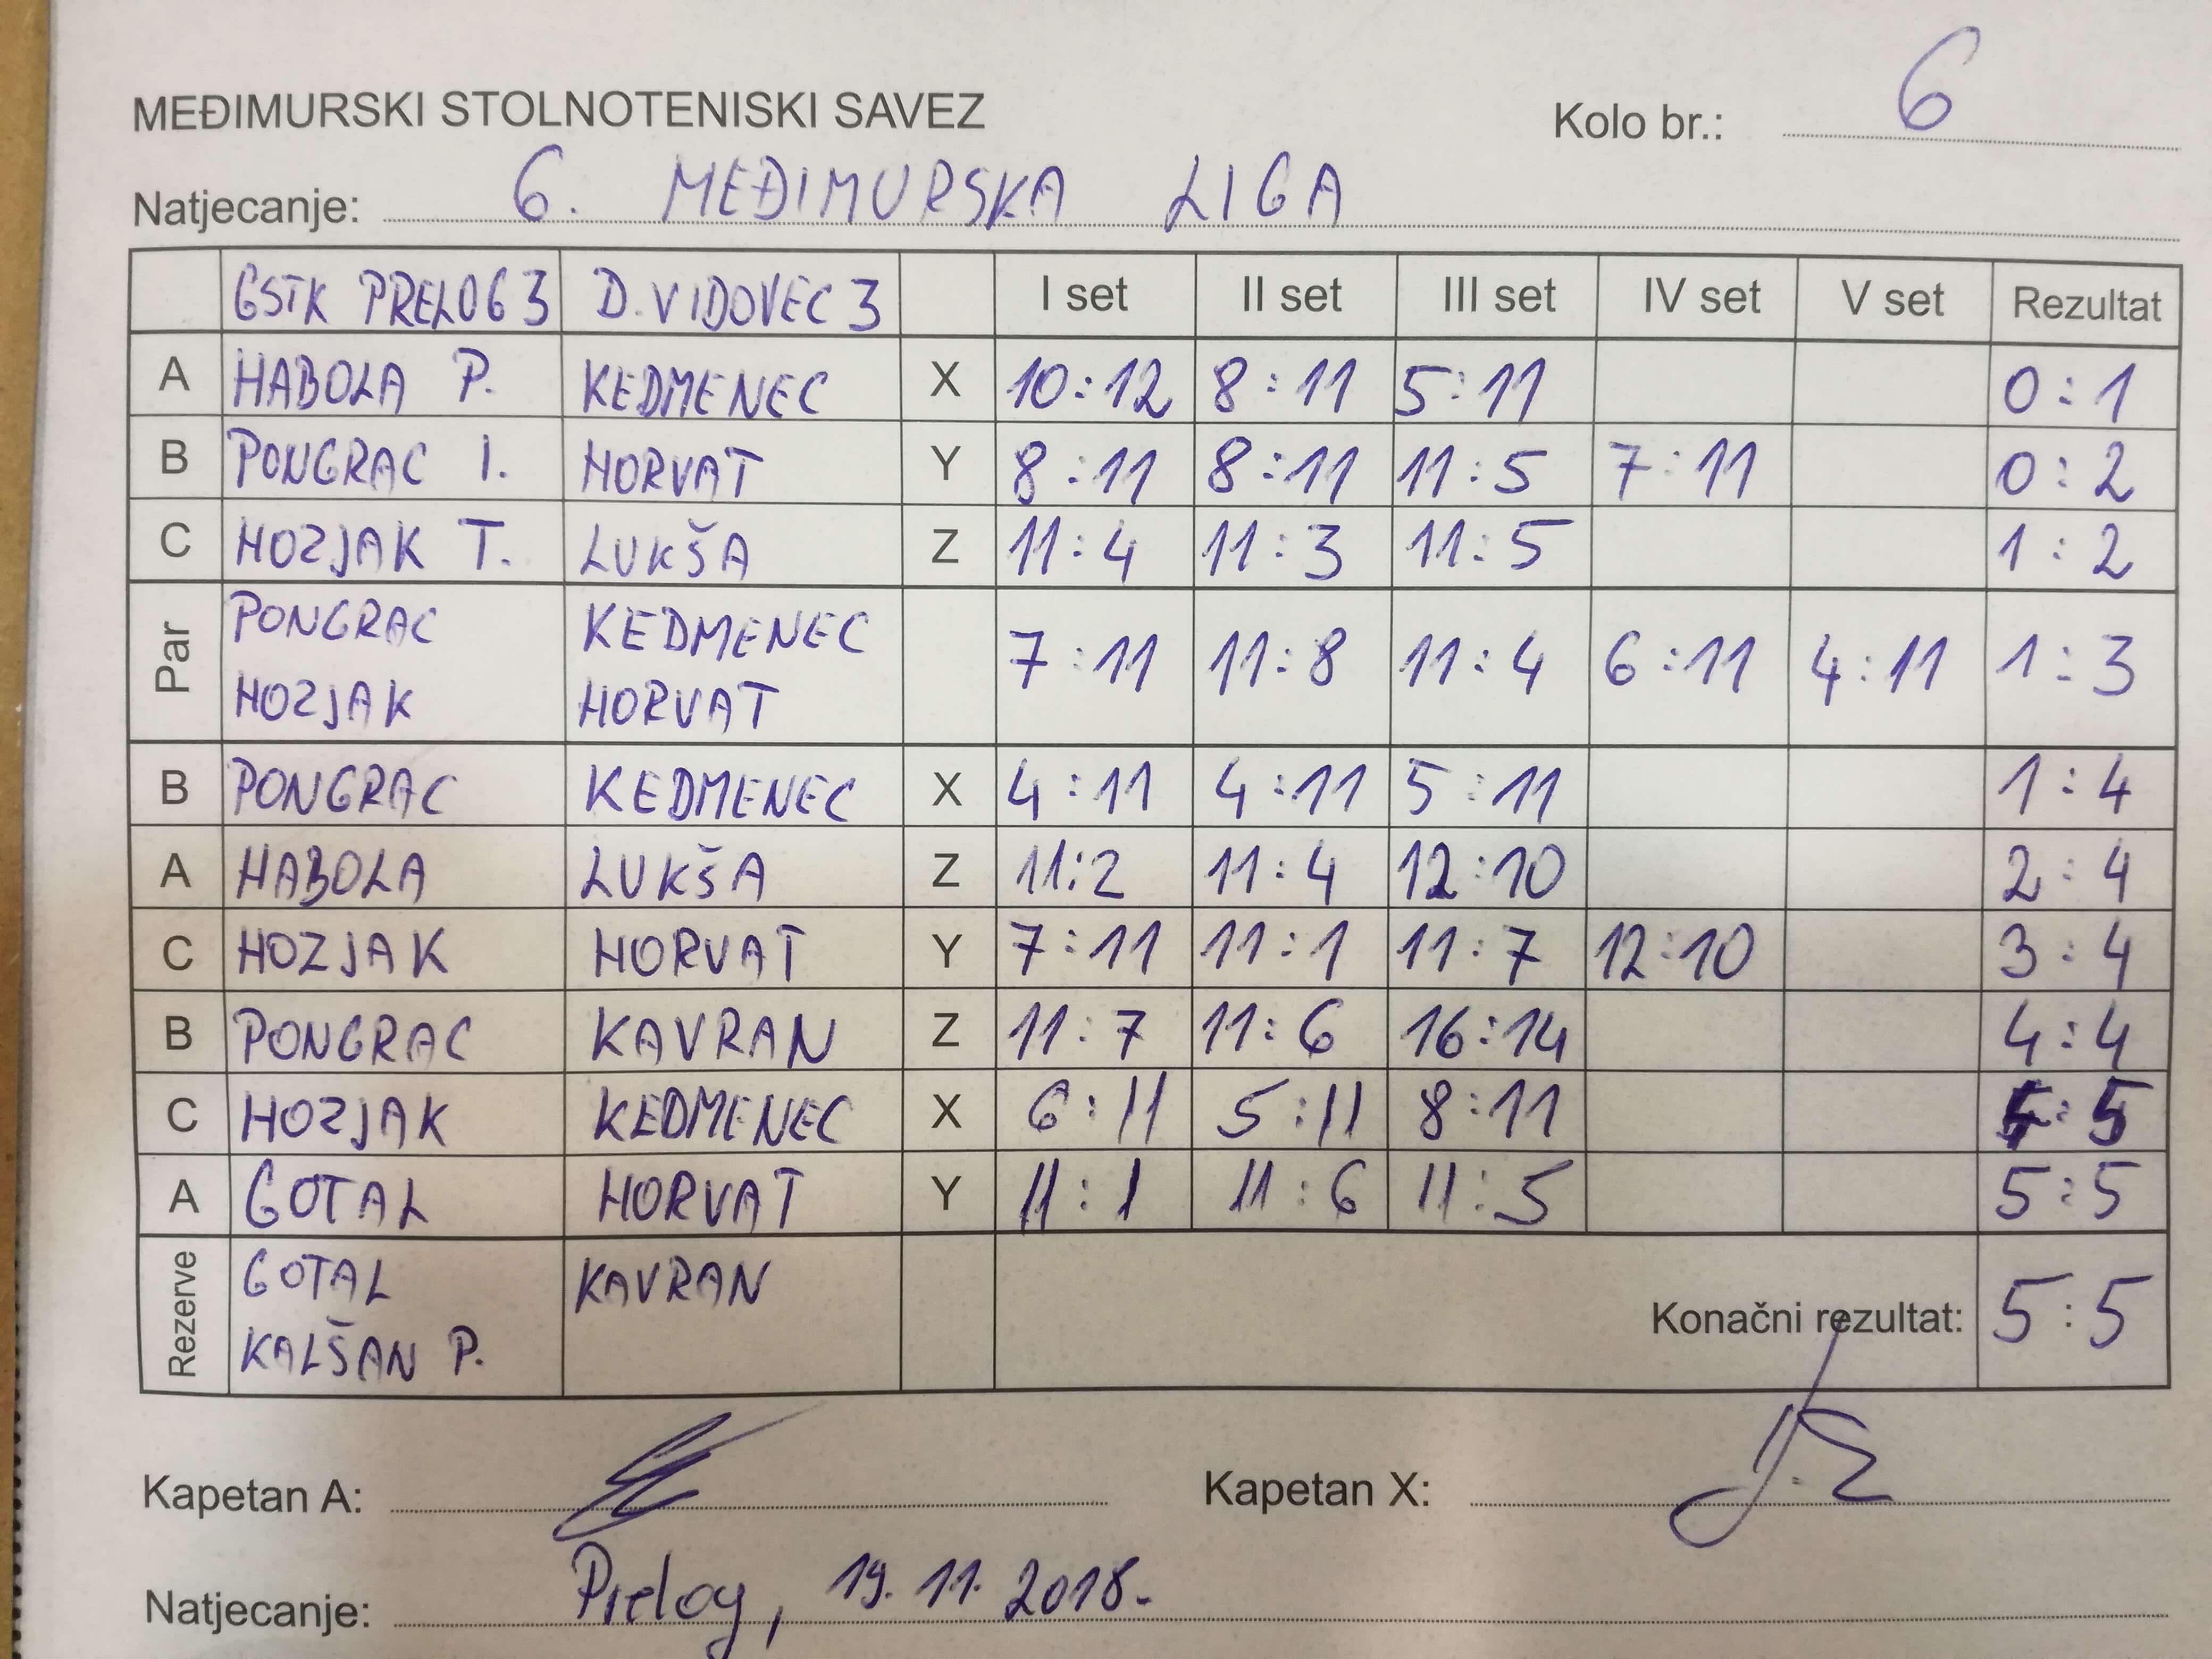 MEĐIMURSKI STOLNOTENISKI SAVEZ Kolo br.: 6
Natjecanje: 6. MEĐIMURSKA LIGA
GSTK PRELOG 3 D. VIDOVEC 3 I set II set III set IV set V set Rezultat
A HABOLA P. KEDMENEC X 10:12 8:11 5:11 0:1
B PONGRAC I. HORVAT Y 8:11 8:11 11:5 7:11 0:2
C HOZJAK T. LUKŠA Z 11:4 11:3 11:5 1:2
Par PONGRAC KEDMENEC 7:11 11:8 11:4 6:11 4:11 1:3
HOZJAK HORVAT
B PONGRAC KEDMENEC X 4:11 4:11 5:11 1:4
A HABOLA LUKŠA Z 11:2 11:4 12:10 2:4
C HOZJAK HORVAT Y 7:11 11:1 11:7 12:10 3:4
B PONGRAC KAVRAN Z 11:7 11:6 16:14 4:4
C HOZJAK KEDMENEC X 6:11 5:11 8:11 4:5
A GOTAL HORVAT Y 11:1 11:6 11:5 5:5
Rezerve GOTAL KAVRAN
KALŠAN P. Konačni rezultat: 5:5
Kapetan A: Kapetan X:
Natjecanje: Prelog, 19. 11. 2018.